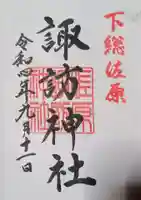 下総佐原
諏訪神社
令和四年九月十一日